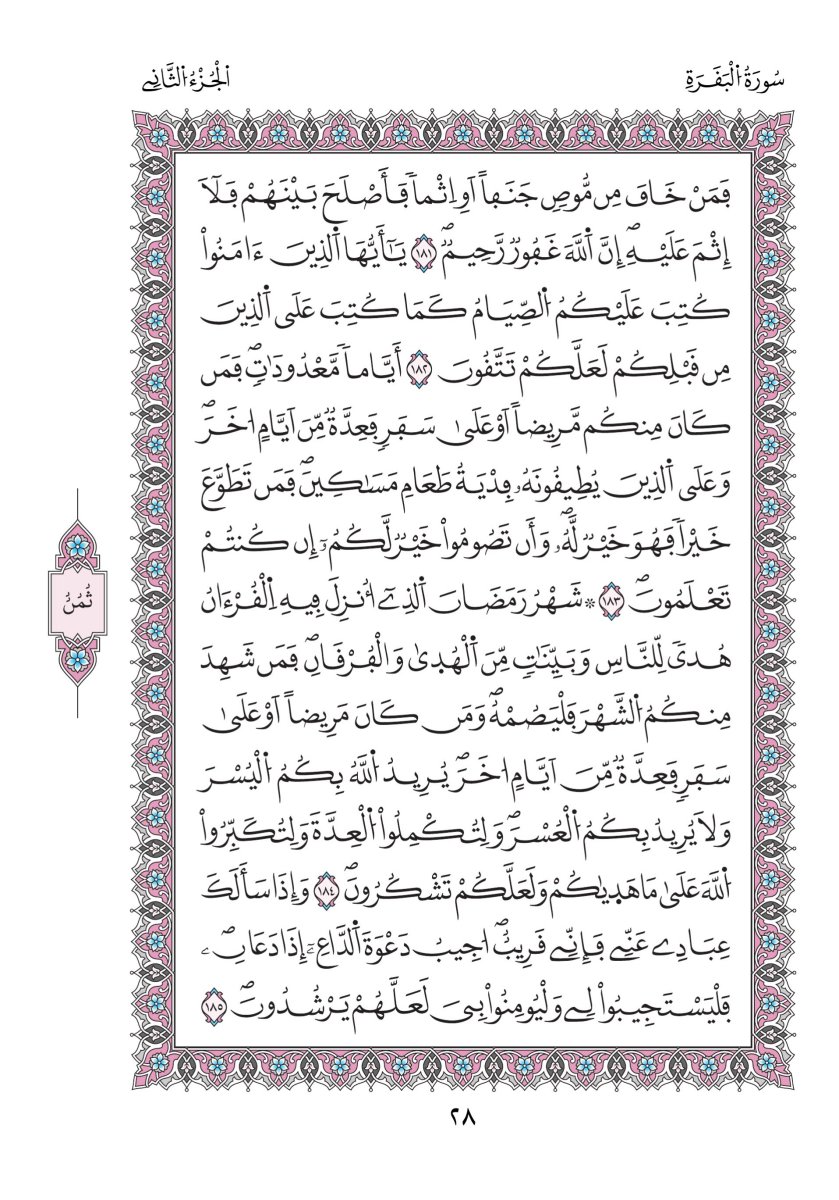 سُورَةُ الْبَقَرَةِ
الْجُزْءُ الثَّانِي
فَمَنْ خَافَ مِن مُّوصٍ جَنَفاً اَوِ اِثْماً فَأَصْلَحَ بَيْنَهُمْ فَلَآ
إِثْمَ عَلَيْهِۖ إِنَّ اَ۬للَّهَ غَفُورٞ رَّحِيمٞۖ ١٨١ يَٰٓأَيُّهَا اَ۬لذِينَ ءَامَنُواْ
كُتِبَ عَلَيْكُمُ اُ۬لصِّيَامُ كَمَا كُتِبَ عَلَى اَ۬لذِينَ
مِن قَبْلِكُمْ لَعَلَّكُمْ تَتَّقُونَ ١٨٢ أَيَّاماٗ مَّعْدُودَٰتٖۖ فَمَن
كَانَ مِنكُم مَّرِيضاً اَوْ عَلَىٰ سَفَرٖ فَعِدَّةٞ مِّنَ اَيَّامٍ اُخَرَۖ
وَعَلَى اَ۬لذِينَ يُطِيقُونَهُۥ فِدْيَةُ طَعَامِ مَسَٰكِينَۖ فَمَن تَطَوَّعَ
خَيْراٗ فَهُوَ خَيْرٞ لَّهُۥۖ وَأَن تَصُومُواْ خَيْرٞ لَّكُمُۥٓ إِن كُنتُمْ
تَعْلَمُونَۖ ١٨٣ ۞ شَهْرُ رَمَضَانَ اَ۬لذِےٓ أُنزِلَ فِيهِ اِ۬لْقُرْءَانُ
هُدىٗ لِّلنَّاسِ وَبَيِّنَٰتٖ مِّنَ اَ۬لْهُدۭيٰ وَالْفُرْقَانِۖ فَمَن شَهِدَ
مِنكُمُ اُ۬لشَّهْرَ فَلْيَصُمْهُۖ وَمَن كَانَ مَرِيضاً اَوْ عَلَىٰ
سَفَرٖ فَعِدَّةٞ مِّنَ اَيَّامٍ اُخَرَۖ يُرِيدُ اُ۬للَّهُ بِكُمُ اُ۬لْيُسْرَ
وَلَا يُرِيدُ بِكُمُ اُ۬لْعُسْرَۖ وَلِتُكْمِلُواْ اُ۬لْعِدَّةَ وَلِتُكَبِّرُواْ
اُ۬للَّهَ عَلَىٰ مَا هَدۭيٰكُمْ وَلَعَلَّكُمْ تَشْكُرُونَۖ ١٨٤ وَإِذَا سَأَلَكَ
عِبَادِے عَنِّے فَإِنِّے قَرِيبٌۖ اُجِيبُ دَعْوَةَ اَ۬لدَّاعِۦٓ إِذَا دَعَانِۦۖ
فَلْيَسْتَجِيبُواْ لِے وَلْيُومِنُواْ بِيَ لَعَلَّهُمْ يَرْشُدُونَۖ ١٨٥
ثُمُنُ
٢٨